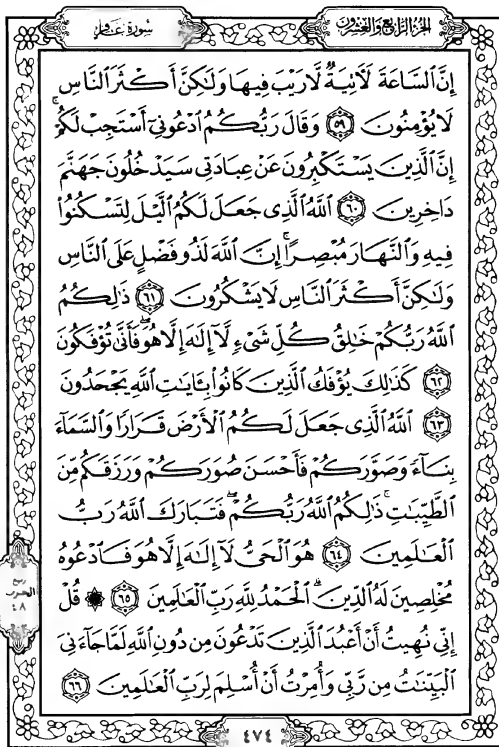 الجزء الرابع والعشرون
سورة غافر
إِنَّ ٱلسَّاعَةَ لَأٓتِيَةٌ لَّا رَيْبَ فِيهَا وَلَٰكِنَّ أَكْثَرَ ٱلنَّاسِ
لَا يُؤْمِنُونَ ٥٩ وَقَالَ رَبُّكُمُ ٱدْعُونِيٓ أَسْتَجِبْ لَكُمْ ۚ
إِنَّ ٱلَّذِينَ يَسْتَكْبِرُونَ عَنْ عِبَادَتِي سَيَدْخُلُونَ جَهَنَّمَ
دَاخِرِينَ ٦٠ ٱللَّهُ ٱلَّذِي جَعَلَ لَكُمُ ٱلَّيْلَ لِتَسْكُنُوا۟
فِيهِ وَٱلنَّهَارَ مُبْصِرًا ۚ إِنَّ ٱللَّهَ لَذُو فَضْلٍ عَلَى ٱلنَّاسِ
وَلَٰكِنَّ أَكْثَرَ ٱلنَّاسِ لَا يَشْكُرُونَ ٦١ ذَٰلِكُمُ
ٱللَّهُ رَبُّكُمْ خَٰلِقُ كُلِّ شَيْءٍ لَّآ إِلَٰهَ إِلَّا هُوَ ۖ فَأَنَّىٰ تُؤْفَكُونَ
٦٢ كَذَٰلِكَ يُؤْفَكُ ٱلَّذِينَ كَانُوا۟ بِـَٔايَٰتِ ٱللَّهِ يَجْحَدُونَ
٦٣ ٱللَّهُ ٱلَّذِي جَعَلَ لَكُمُ ٱلْأَرْضَ قَرَارًا وَٱلسَّمَآءَ
بِنَآءً وَصَوَّرَكُمْ فَأَحْسَنَ صُوَرَكُمْ وَرَزَقَكُم مِّنَ
ٱلطَّيِّبَٰتِ ۚ ذَٰلِكُمُ ٱللَّهُ رَبُّكُمْ ۖ فَتَبَارَكَ ٱللَّهُ رَبُّ
ٱلْعَٰلَمِينَ ٦٤ هُوَ ٱلْحَيُّ لَآ إِلَٰهَ إِلَّا هُوَ فَٱدْعُوهُ
مُخْلِصِينَ لَهُ ٱلدِّينَ ۗ ٱلْحَمْدُ لِلَّهِ رَبِّ ٱلْعَٰلَمِينَ ٦٥ ۞ قُلْ
إِنِّي نُهِيتُ أَنْ أَعْبُدَ ٱلَّذِينَ تَدْعُونَ مِن دُونِ ٱللَّهِ لَمَّا جَآءَنِيَ
ٱلْبَيِّنَٰتُ مِن رَّبِّي وَأُمِرْتُ أَنْ أُسْلِمَ لِرَبِّ ٱلْعَٰلَمِينَ ٦٦
ربع
الحزب
٤٨
٤٧٤